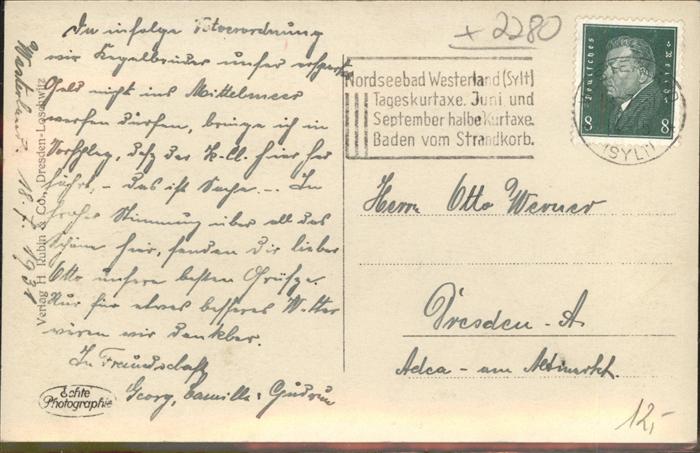 Da infolge Notverordnung
wir Kegelbrüder unser erspartes
Geld nicht ins Mittelmeer
werfen dürfen, bringe ich in
Vorschlag, daß der K-Cl. hier her
fährt. - das ist Sache -. In
großer Stimmung über all das
Schöne hier, senden Dir lieber
Otto unsere besten Grüße.
Nur für etwas besseres Wetter
wären wir dankbar.
In Freundschaft
Georg, Camilla & Gudrun
Westerland. 18.7.1931
Verlag H. Rubin & Co., Dresden-Loschwitz
Echte
Photographie
x 2280
Nordseebad Westerland (Sylt)
Tageskurtaxe. Juni und
September halbe Kurtaxe.
Baden vom Strandkorb.
Deutsches Reich
8 8
(SYLT)
Herrn Otto Werner
Dresden-A.
Adca - am Altmarkt.
12,-